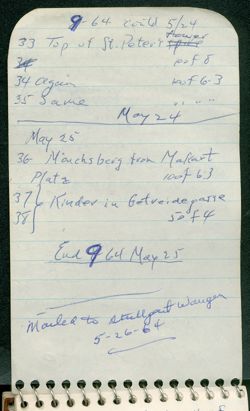 9-64 cold 5/24
33 Top of St. Peter's tower
100 f 8
34 Again 100 f 6.3
35 Same " " "
May 24
May 25
36 Mönchsberg from Makart
Platz 100 f 6.3
37 Kinder in Getreidegasse
38 50 f 4
End 9 64 May 25
Mailed to Stuttgart Wangen
5-26-64